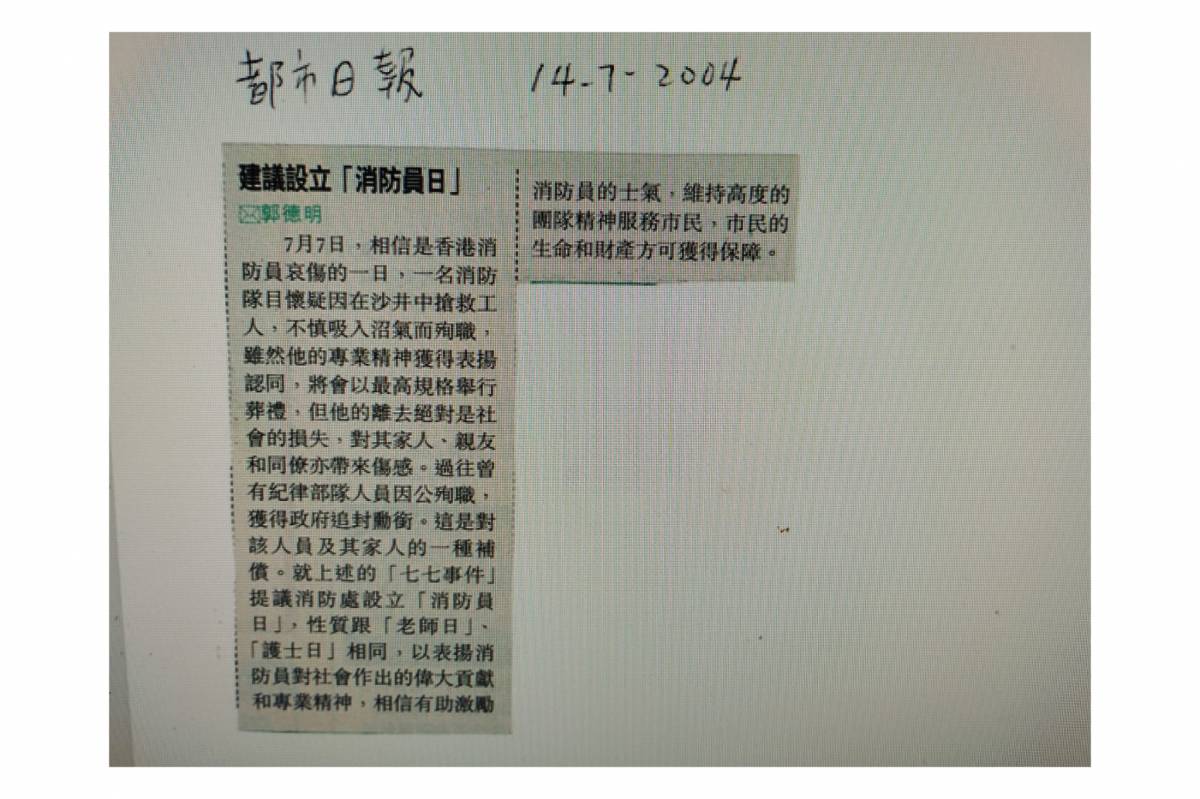 都市日報 14-7-2004
建議設立「消防員日」
郭德明
7月7日，相信是香港消
防員哀傷的一日，一名消防
隊目懷疑因在沙井中搶救工
人，不慎吸入沼氣而殉職，
雖然他的專業精神獲得表揚
認同，將會以最高規格舉行
葬禮，但他的離去絕對是社
會的損失，對其家人、親友
和同僚亦帶來傷感。過往曾
有紀律部隊人員因公殉職，
獲得政府追封勳銜。這是對
該人員及其家人的一種補
償。就上述的「七七事件」
提議消防處設立「消防員
日」，性質跟「老師日」、
「護士日」相同，以表揚消
防員對社會作出的偉大貢獻
和專業精神，相信有助激勵
消防員的士氣，維持高度的
團隊精神服務市民，市民的
生命和財產方可獲得保障。